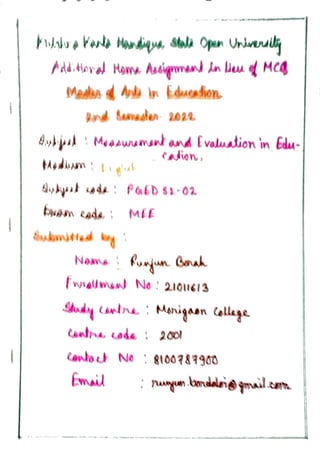 Krishna Kanta Handique State Open University
Additional Home Assignment in lieu of MCQ
Master of Arts in Education
2nd Semester 2022
Subject : Measurement and Evaluation in Edu-
cation.
Medium : English
Subject code : PGED S2-02
Exam code : MEE
Submitted by :
Name : Runjun Borah
Enrollment No : 21011613
Study centre : Morigaon College
Centre code : 2001
Contact No : 8100787900
Email : runjun.bordoloi@gmail.com